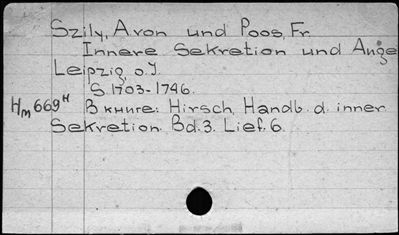 Szily, Aron und Poos, Fr.
Innere Sekretion und Auge
Leipzig, o.J.
S. 1703-1746.
Hm 669н В книге: Hirsch, Handb. d. inner
Sekretion. Bd. 3. Lief. 6.